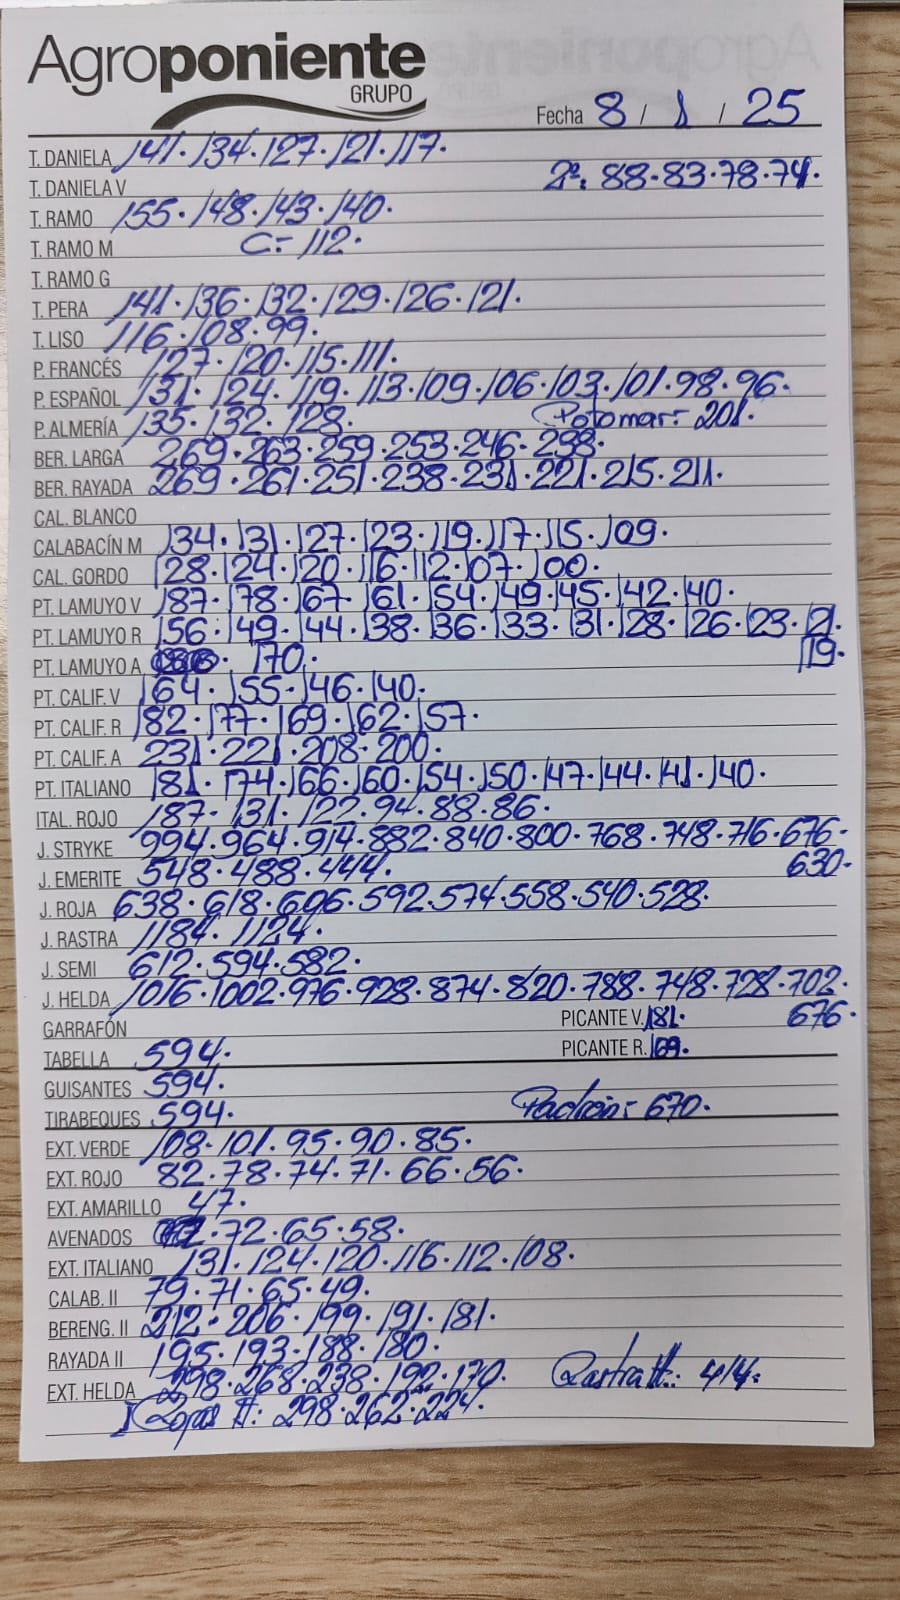 Agroponiente
GRUPO
Fecha 8 / 1 / 25
T. DANELA 141. 134. 127. 121. 117.
T. DANIELA V 2ª: 88. 83. 78. 74.
T. RAMO 155. 148. 143. 140.
T. RAMO M C= 112.
T. RAMO G
T. PERA 141. 136. 132. 129. 126. 121.
T. LISO 116. 108. 99.
P. FRANCÉS 127. 120. 115. 111.
P. ESPAÑOL 131. 124. 119. 113. 109. 106. 103. 101. 98. 96.
P. ALMERÍA 135. 132. 128. Potomar: 201.
BER. LARGA 269. 263. 259. 253. 246. 238.
BER. RAYADA 269. 261. 251. 238. 231. 221. 215. 211.
CAL. BLANCO
CALABACÍN M 134. 131. 127. 123. 119. 117. 115. 109.
CAL. GORDO 128. 124. 120. 116. 112. 107. 100.
PT. LAMUYO V 187. 178. 167. 161. 154. 149. 145. 142. 140.
PT. LAMUYO R 156. 149. 144. 138. 136. 133. 131. 128. 126. 123. 121.
119.
PT. LAMUYO A 170.
PT. CALIF. V 164. 155. 146. 140.
PT. CALIF. R 182. 177. 169. 162. 157.
PT. CALIF. A 231. 221. 208. 200.
PT. ITALIANO 181. 174. 166. 160. 154. 150. 147. 144. 141. 140.
ITAL. ROJO 187. 131. 122. 94. 88. 86.
J. STRYKE 994. 964. 914. 882. 840. 800. 768. 748. 716. 676.
630.
J. EMERITE 548. 488. 444.
J. ROJA 638. 618. 606. 592. 574. 558. 540. 528.
J. RASTRA 1184. 1124.
J. SEMI 612. 594. 582.
J. HELDA 1016. 1002. 976. 928. 874. 820. 788. 748. 728. 702.
676.
GARRAFÓN PICANTE V. 181.
TABELLA 594. PICANTE R. 169.
GUISANTES 594.
TIRABEQUES 594. Padrón: 670.
EXT. VERDE 108. 101. 95. 90. 85.
EXT. ROJO 82. 78. 74. 71. 66. 56.
EXT. AMARILLO 47.
AVENADOS 72. 65. 58.
EXT. ITALIANO 131. 124. 120. 116. 112. 108.
CALAB. II 79. 71. 65. 49.
BERENG. II 212. 206. 199. 191. 181.
RAYADA II 195. 193. 188. 180.
EXT. HELDA 298. 268. 238. 192. 170. Rastra II: 414.
II: 298. 262. 224.